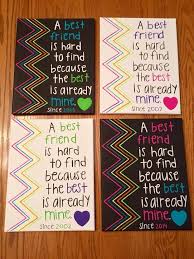 A best
friend
is hard
to find
because
the best
is already
mine.
SINCE
A best
friend
is hard
to find
because
the best
is already
mine.
SINCE 2002
A best
friend
is hard
to find
because
the best
is already
mine.
SINCE 2002
A best
friend
is hard
to find
because
the best
is already
mine.
SINCE 2014